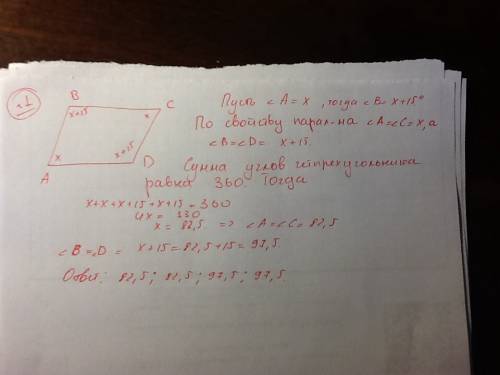 №1
B
C
x+15
x
x
x+15
A
D
Пусть ∠A = x, тогда ∠B = x+15°
По свойству парал-ма ∠A=∠C=x, а
∠B=∠D= x+15.
Сумма углов четырехугольника
равна 360. Тогда
x+x+x+15+x+15=360
4x = 330
x = 82,5. => ∠A=∠C= 82,5
∠B=∠D= x+15=82,5+15=97,5.
Ответ: 82,5; 82,5; 97,5; 97,5.